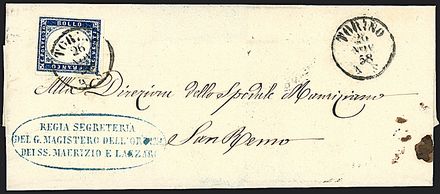 BOLLO
FRANCO
TOR
26
TORINO
26
NOV
58
Alla Direzione dello Spedale Mauriziano
San Remo
REGIA SEGRETERIA
DEL G. MAGISTERO DELL'OR
DEI SS. MAURIZIO E LAZZAR